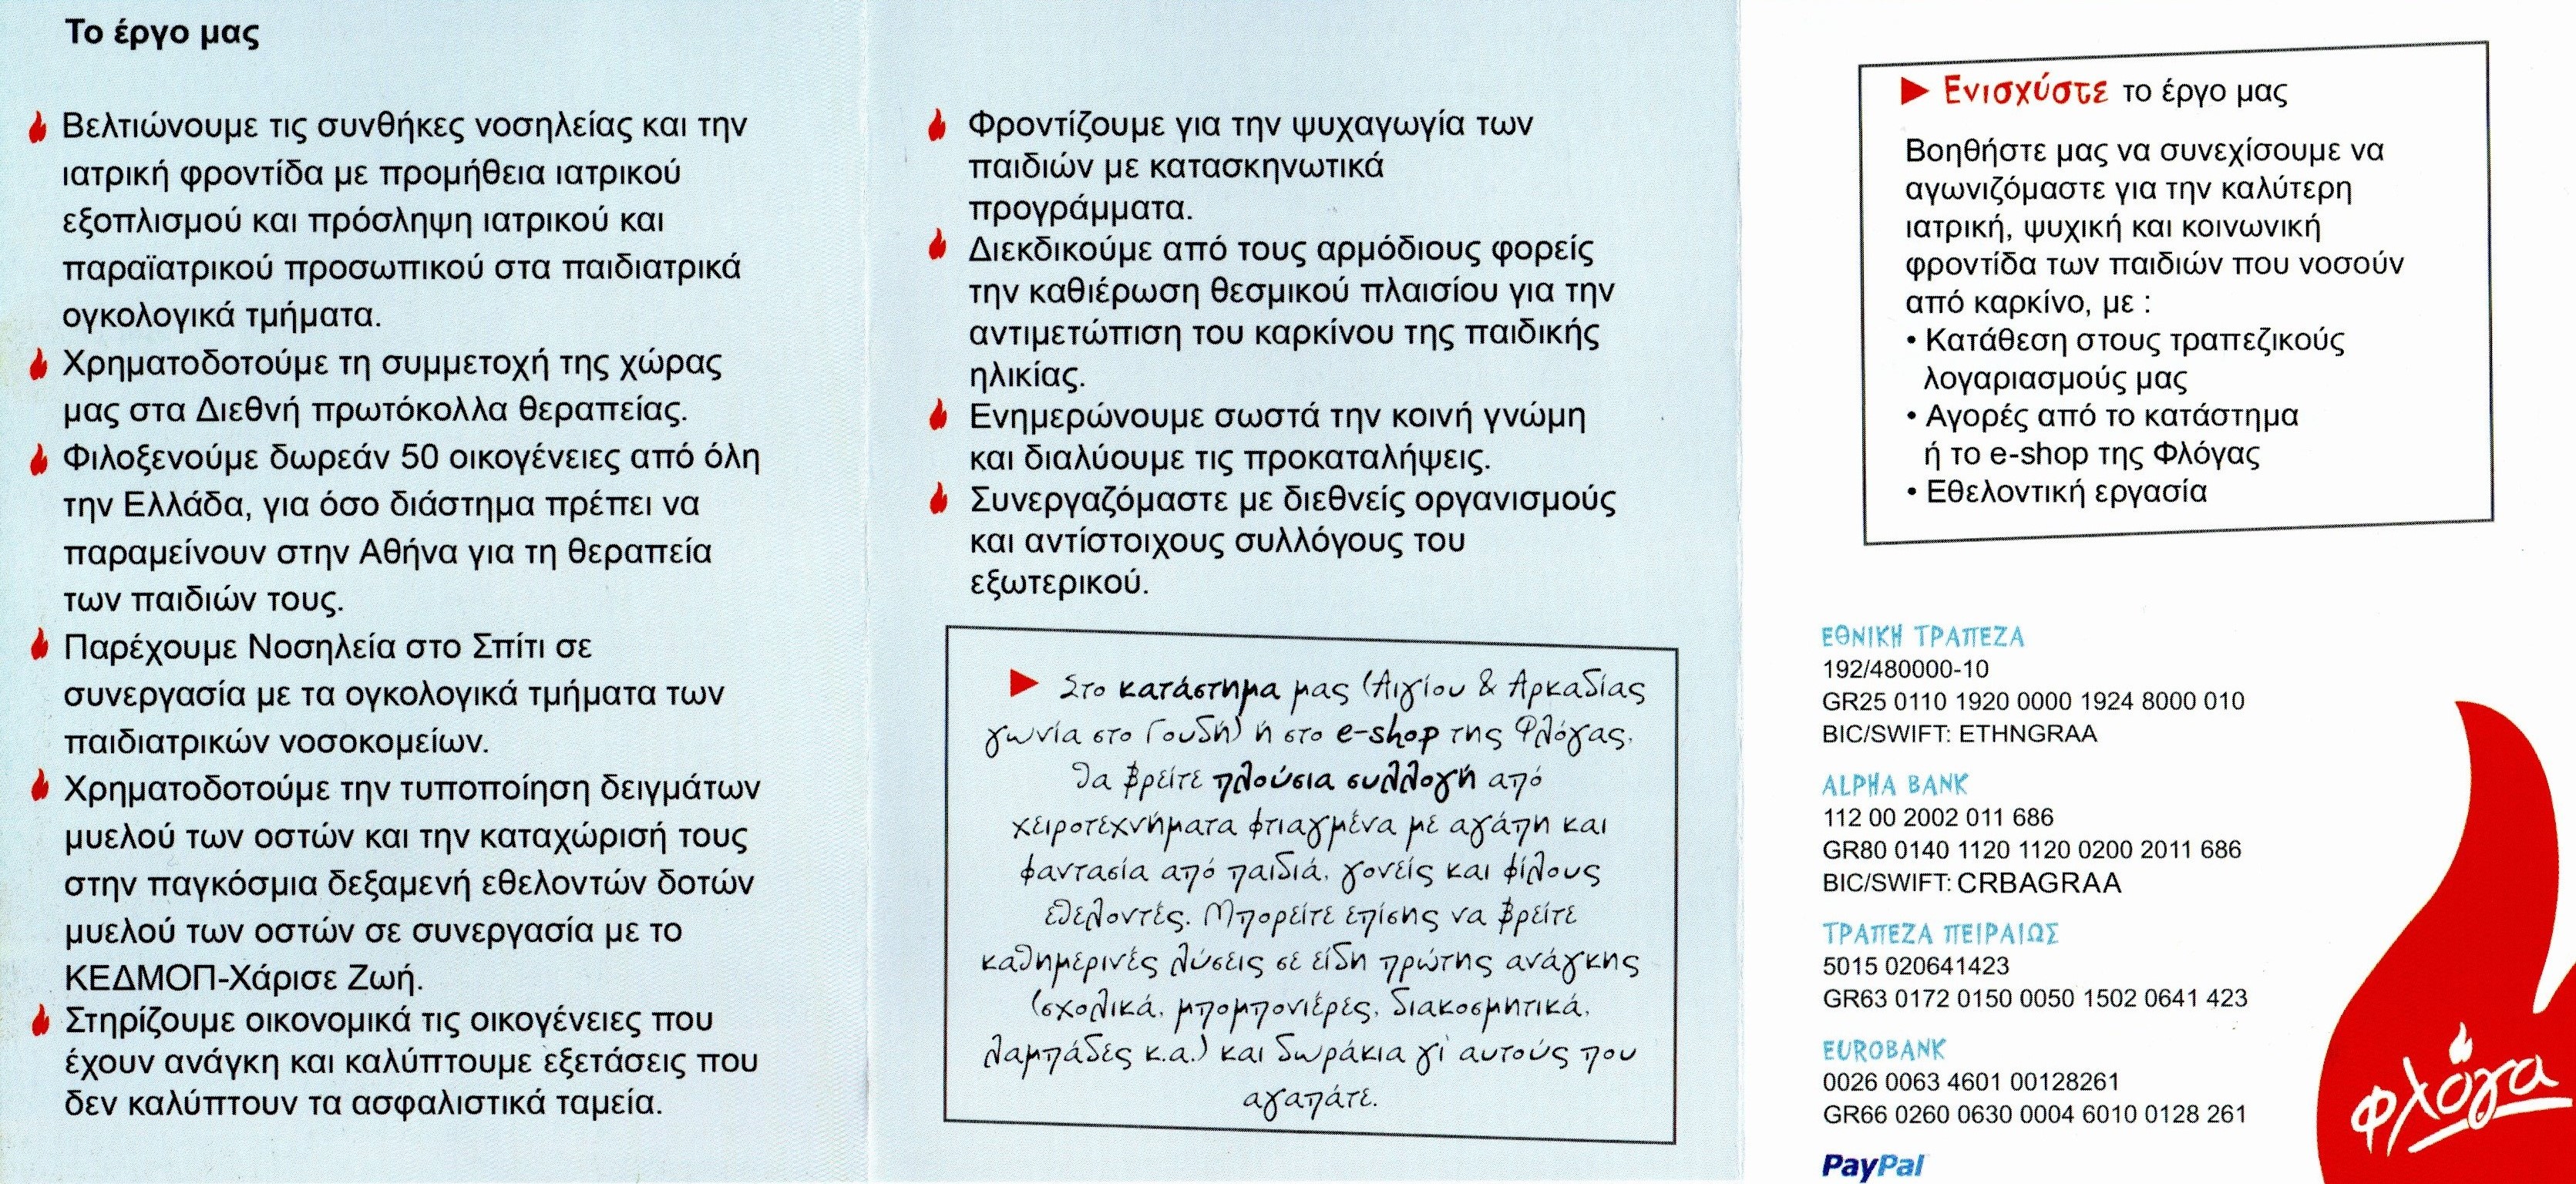 Το έργο μας
Βελτιώνουμε τις συνθήκες νοσηλείας και την
ιατρική φροντίδα με προμήθεια ιατρικού
εξοπλισμού και πρόσληψη ιατρικού και
παραϊατρικού προσωπικού στα παιδιατρικά
ογκολογικά τμήματα.
Χρηματοδοτούμε τη συμμετοχή της χώρας
μας στα Διεθνή πρωτόκολλα θεραπείας.
Φιλοξενούμε δωρεάν 50 οικογένειες από όλη
την Ελλάδα, για όσο διάστημα πρέπει να
παραμείνουν στην Αθήνα για τη θεραπεία
των παιδιών τους.
Παρέχουμε Νοσηλεία στο Σπίτι σε
συνεργασία με τα ογκολογικά τμήματα των
παιδιατρικών νοσοκομείων.
Χρηματοδοτούμε την τυποποίηση δειγμάτων
μυελού των οστών και την καταχώρισή τους
στην παγκόσμια δεξαμενή εθελοντών δοτών
μυελού των οστών σε συνεργασία με το
ΚΕΔΜΟΠ-Χάρισε Ζωή.
Στηρίζουμε οικονομικά τις οικογένειες που
έχουν ανάγκη και καλύπτουμε εξετάσεις που
δεν καλύπτουν τα ασφαλιστικά ταμεία.
Φροντίζουμε για την ψυχαγωγία των
παιδιών με κατασκηνωτικά
προγράμματα.
Διεκδικούμε από τους αρμόδιους φορείς
την καθιέρωση θεσμικού πλαισίου για την
αντιμετώπιση του καρκίνου της παιδικής
ηλικίας.
Ενημερώνουμε σωστά την κοινή γνώμη
και διαλύουμε τις προκαταλήψεις.
Συνεργαζόμαστε με διεθνείς οργανισμούς
και αντίστοιχους συλλόγους του
εξωτερικού.
► Στο κατάστημα μας (Αιγίου & Αρκαδίας
γωνία στο Γουδή) ή στο e-shop της Φλόγας,
θα βρείτε πλούσια συλλογή από
χειροτεχνήματα φτιαγμένα με αγάπη και
φαντασία από παιδιά, γονείς και φίλους
εθελοντές. Μπορείτε επίσης να βρείτε
καθημερινές λύσεις σε είδη πρώτης ανάγκης
(σχολικά, μπομπονιέρες, διακοσμητικά,
λαμπάδες κ.α.) και δωράκια γι' αυτούς που
αγαπάτε.
► Ενισχύστε το έργο μας
Βοηθήστε μας να συνεχίσουμε να
αγωνιζόμαστε για την καλύτερη
ιατρική, ψυχική και κοινωνική
φροντίδα των παιδιών που νοσούν
από καρκίνο, με :
• Κατάθεση στους τραπεζικούς
λογαριασμούς μας
• Αγορές από το κατάστημα
ή το e-shop της Φλόγας
• Εθελοντική εργασία
ΕΘΝΙΚΗ ΤΡΑΠΕΖΑ
192/480000-10
GR25 0110 1920 0000 1924 8000 010
BIC/SWIFT: ETHNGRAA
ALPHA BANK
112 00 2002 011 686
GR80 0140 1120 1120 0200 2011 686
BIC/SWIFT: CRBAGRAA
ΤΡΑΠΕΖΑ ΠΕΙΡΑΙΩΣ
5015 020641423
GR63 0172 0150 0050 1502 0641 423
EUROBANK
0026 0063 4601 00128261
GR66 0260 0630 0004 6010 0128 261
PayPal
φλόγα